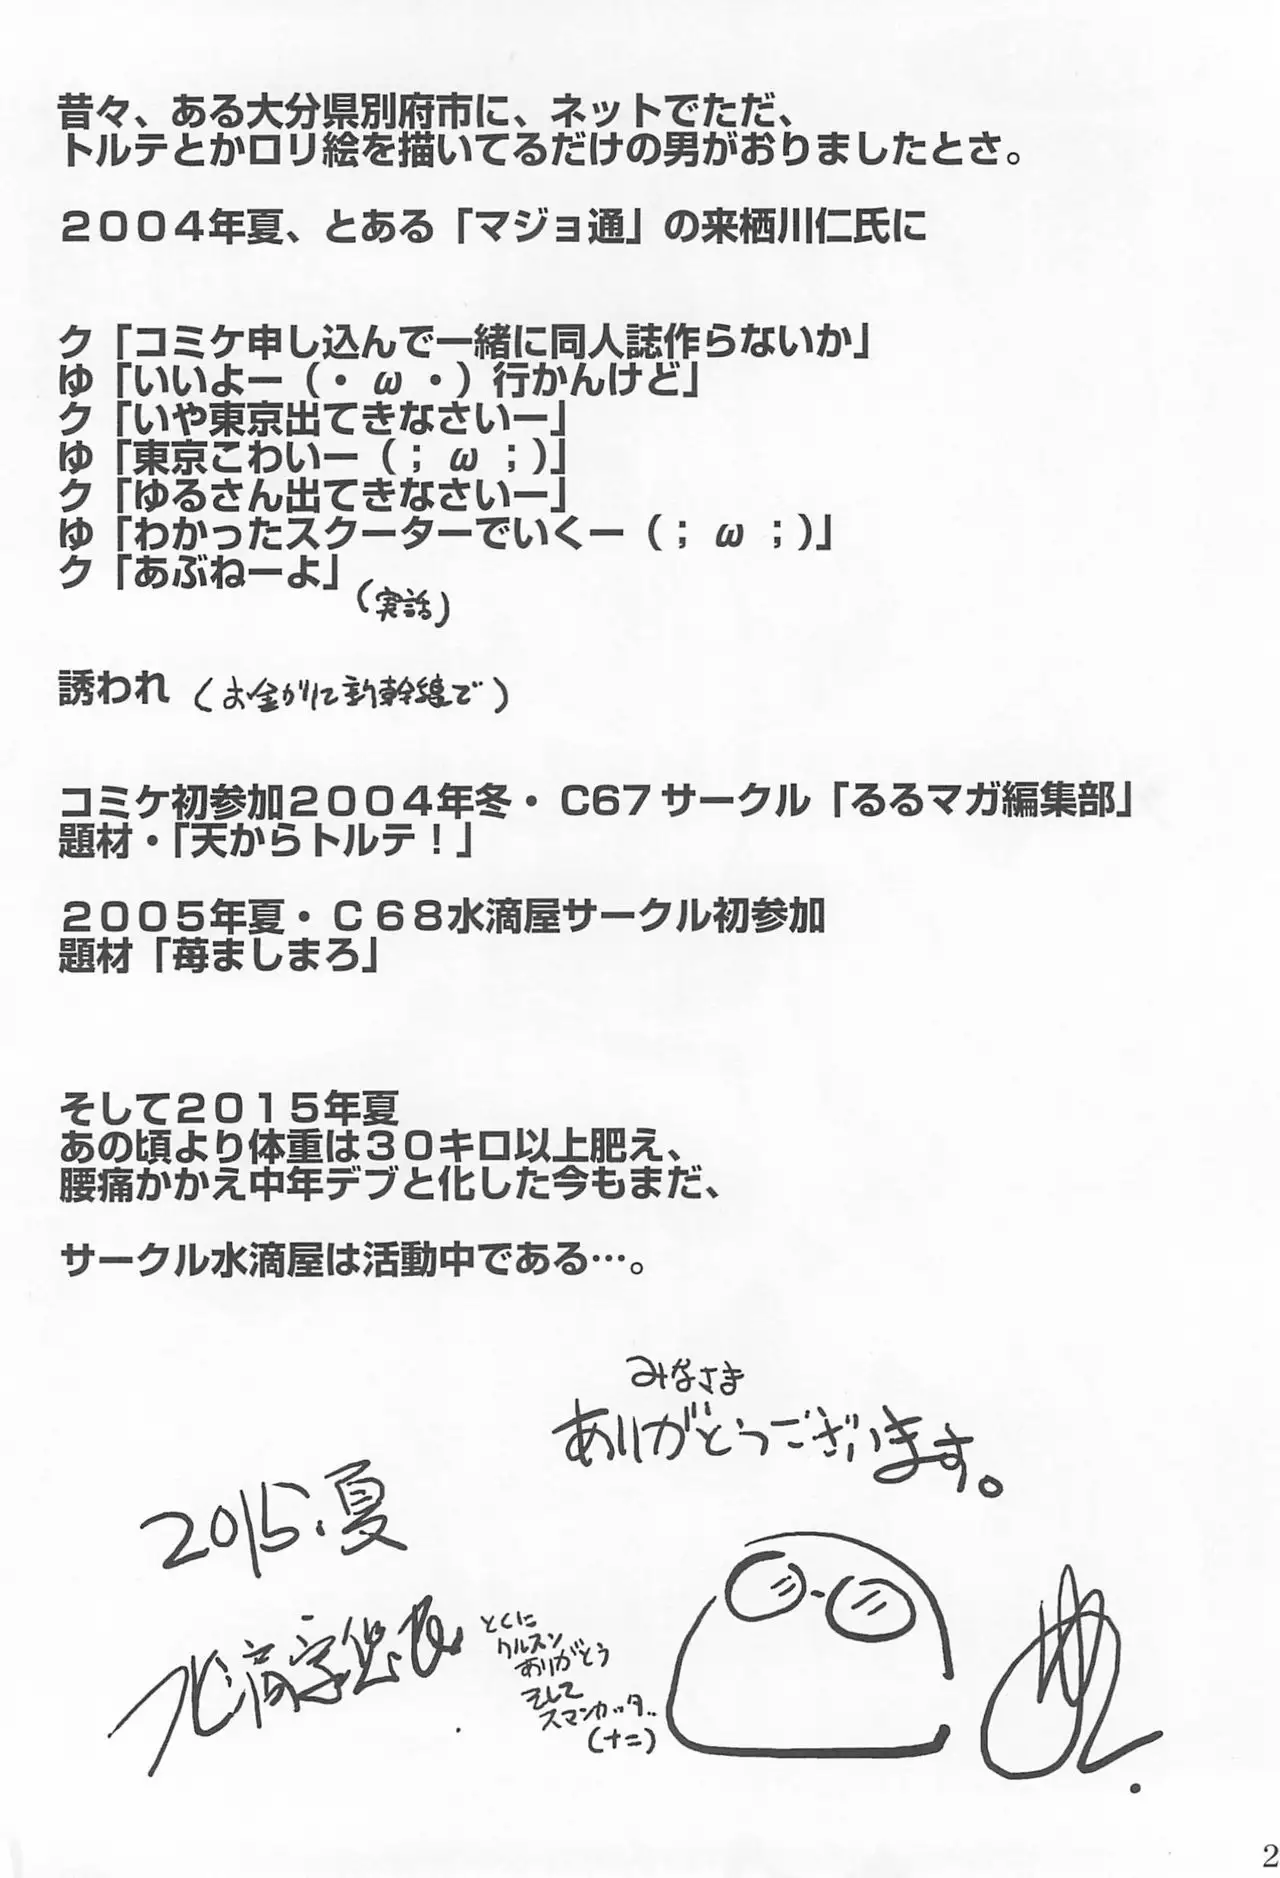 昔々、ある大分県別府市に、ネットでただ、
トルテとかロリ絵を描いてるだけの男がおりましたとさ。
２００４年夏、とある「マジョ通」の来栖川仁氏に
ク「コミケ申し込んで一緒に同人誌作らないか」
ゆ「いいよー（・ω・）行かんけど」
ク「いや東京出てきなさいー」
ゆ「東京こわいー（；ω；）」
ク「ゆるさん出てきなさいー」
ゆ「わかったスクーターでいくー（；ω；）」
ク「あぶねーよ」
（実話）
誘われ（お金かりに新幹線で）
コミケ初参加２００４年冬・C67サークル「るるマガ編集部」
題材・「天からトルテ！」
２００５年夏・C６８水滴屋サークル初参加
題材「苺ましまろ」
そして２０１５年夏
あの頃より体重は３０キロ以上肥え、
腰痛かかえ中年デブと化した今もまだ、
サークル水滴屋は活動中である…。
みなさま
ありがとうございます。
2015.夏
とくに
クルスン
ありがとう
そして
スマンカッタ..
2